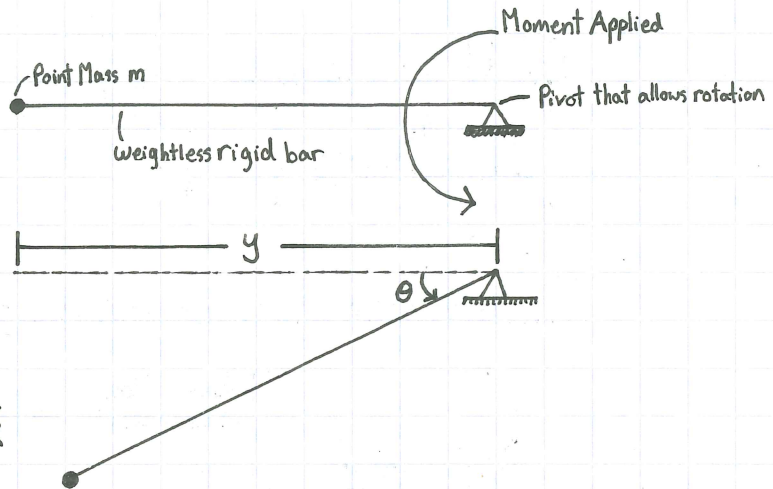 Moment Applied
Point Mass m
Pivot that allows rotation
weightless rigid bar
y
θ